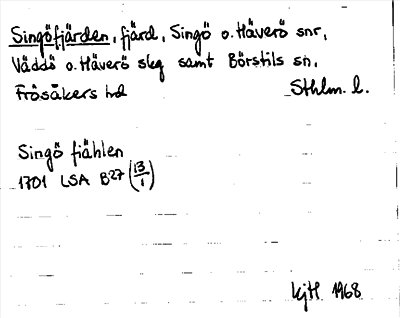 Singöfjärden, fjärd, Singö o. Häverö snr,
Väddö o. Häverö skg samt Börstils sn,
Frösåkers hd Sthlm. l.
Singö fiählen
1701 LSA B27 (13/1)
KjH 1968